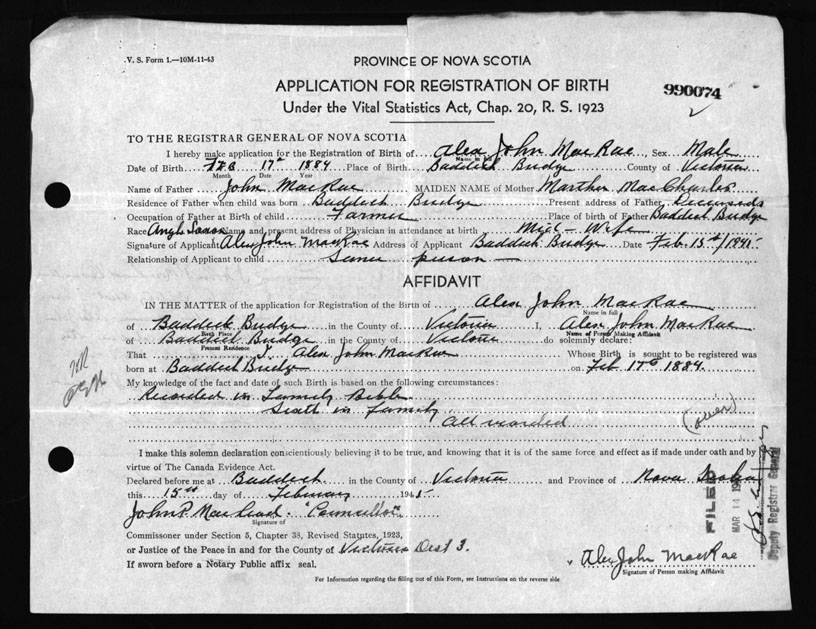 V. S. Form 1.—10M-11-43
PROVINCE OF NOVA SCOTIA
APPLICATION FOR REGISTRATION OF BIRTH
990074
Under the Vital Statistics Act, Chap. 20, R. S. 1923
TO THE REGISTRAR GENERAL OF NOVA SCOTIA
I hereby make application for the Registration of Birth of Alex John MacRae, Sex Male
Name in full
Date of Birth FEB 17th 1884 Place of Birth Baddeck Bridge County of Victoria
Month Date Year
Name of Father John MacRae MAIDEN NAME of Mother Marther MacCharles
Residence of Father when child was born Baddeck Bridge Present address of Father
Occupation of Father at Birth of child Farmer Place of birth of Father Baddeck Bridge
Race Anglo Saxon Name and present address of Physician in attendance at birth Mid-Wife
Signature of Applicant Alex John MacRae Address of Applicant Baddeck Bridge Date Feb. 15th/1945
Relationship of Applicant to child same person
AFFIDAVIT
IN THE MATTER of the application for Registration of the Birth of Alex John MacRae
Name in full
of Baddeck Bridge in the County of Victoria I, Alex John MacRae
Birth Place Name of Person Making Affidavit
of Baddeck Bridge in the County of Victoria do solemnly declare:
Present Residence
That I. Alex John MacRae Whose Birth is sought to be registered was
born at Baddeck Bridge on Feb 17th 1884.
My knowledge of the fact and date of such Birth is based on the following circumstances:
Recorded in Family Bible
Sixth in family.
All recorded
(over)
I make this solemn declaration conscientiously believing it to be true, and knowing that it is of the same force and effect as if made under oath and by
virtue of The Canada Evidence Act.
Declared before me at Baddeck in the County of Victoria and Province of Nova Scotia
this 15th day of February 1945
John P. MacLeod. "Councillor"
Signature of
Commissioner under Section 5, Chapter 38, Revised Statutes, 1923,
or Justice of the Peace in and for the County of Victoria Dist 3.
If sworn before a Notary Public affix seal.
Alex John MacRae
Signature of Person making Affidavit
For Information regarding the filling out of this Form, see Instructions on the reverse side
FILED
MAR 14
Deputy Registrar General